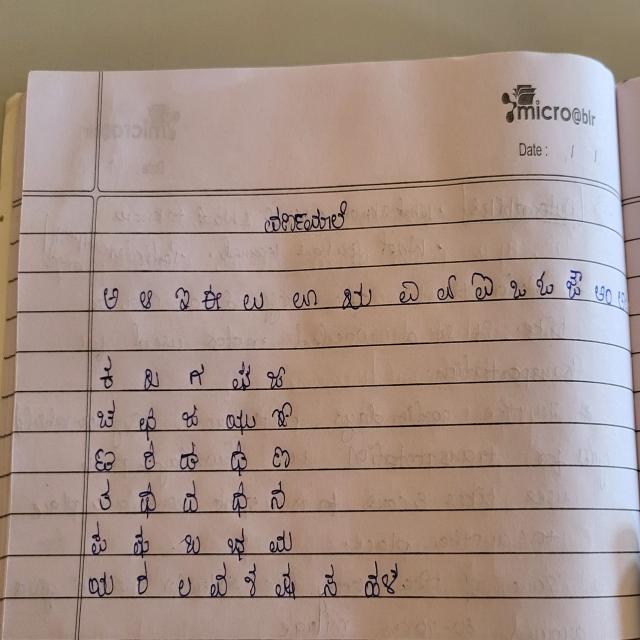 micro@blr
Date : / /
ವರ್ಣಮಾಲೆ
ಅ ಆ ಇ ಈ ಉ ಊ ಋ ಎ ಏ ಐ ಒ ಓ ಔ ಅಂ
ಕ ಖ ಗ ಘ ಙ
ಚ ಛ ಜ ಝ ಞ
ಟ ಠ ಡ ಢ ಣ
ತ ಥ ದ ಧ ನ
ಪ ಫ ಬ ಭ ಮ
ಯ ರ ಲ ವ ಶ ಷ ಸ ಹ ಳ.